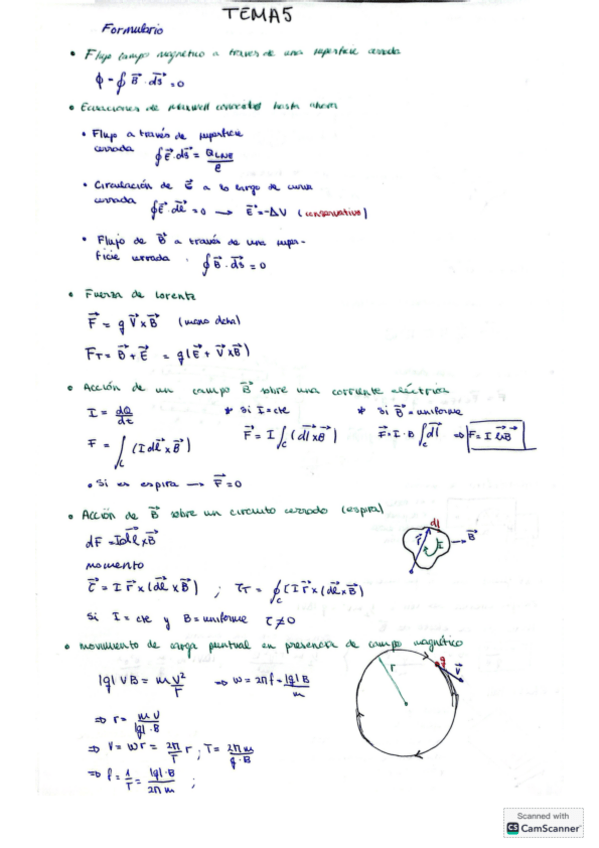 TEMA 5
Formulario
• Flujo campo magnético a traves de una superficie cerrada
ϕ = ∮ B⃗ · ds⃗ = 0
• Ecuaciones de Maxwell conocidas hasta ahora
• Flujo a través de superficie
cerrada ∮ E⃗ · ds⃗ = Q_INE / ε
• Circulación de E⃗ a lo largo de curva
cerrada ∮ E⃗ · dl⃗ = 0 → E⃗ = -ΔV (conservativo)
• Flujo de B⃗ a través de una super-
ficie cerrada . ∮ B⃗ · ds⃗ = 0
• Fuerza de Lorentz
F⃗ = q V⃗ x B⃗ (mano dcha)
F_T = B⃗ + E⃗ = q(E⃗ + V⃗ x B⃗)
• Acción de un campo B⃗ sobre una corriente eléctrica
I = dQ/dt * Si I = cte * Si B⃗ = uniforme
F = ∫_C (I dl⃗ x B⃗) F⃗ = I ∫_C (dl⃗ x B⃗) F⃗ = I · B ∫_C dl⃗ ⇒ F⃗ = I l⃗xB⃗
• Si es espira → F⃗ = 0
• Acción de B⃗ sobre un circuito cerrado (espira)
dF = Idl⃗ x B⃗
momento
τ⃗ = I r⃗ x (dl⃗ x B⃗) ; τ_T = ∮_C (I r⃗ x (dl⃗ x B⃗)
Si I = cte y B = uniforme τ ≠ 0
dl
r⃗
I
B⃗
• movimiento de carga puntual en presencia de campo magnético
|q| VB = m V²/r ⇒ w = 2πf = |q| B / m
⇒ r = m V / |q| · B
⇒ V = wr = 2π/T r ; T = 2π m / q · B
⇒ f = 1/T = |q| · B / 2π m ;
r
q
V⃗
Scanned with
CS CamScanner